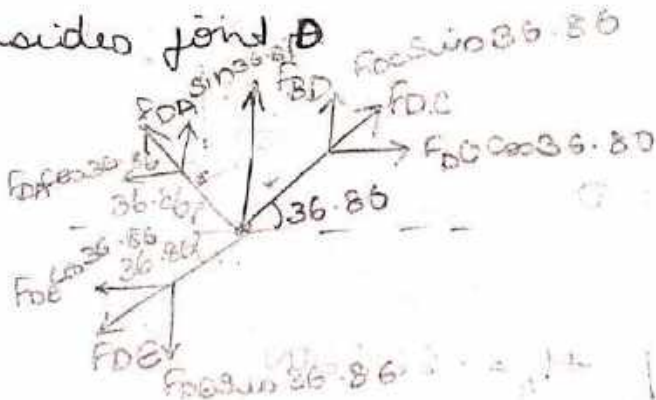 sides joint D
F_DC sin 36.86
F_DA sin 36.86
F_BD
F_DC
F_DA
F_DC Cos 36.86
F_DA cos 36.86
36.86
36.86
cos 36.86
36.86
F_DE
F_DE
F_DE sin 36.86